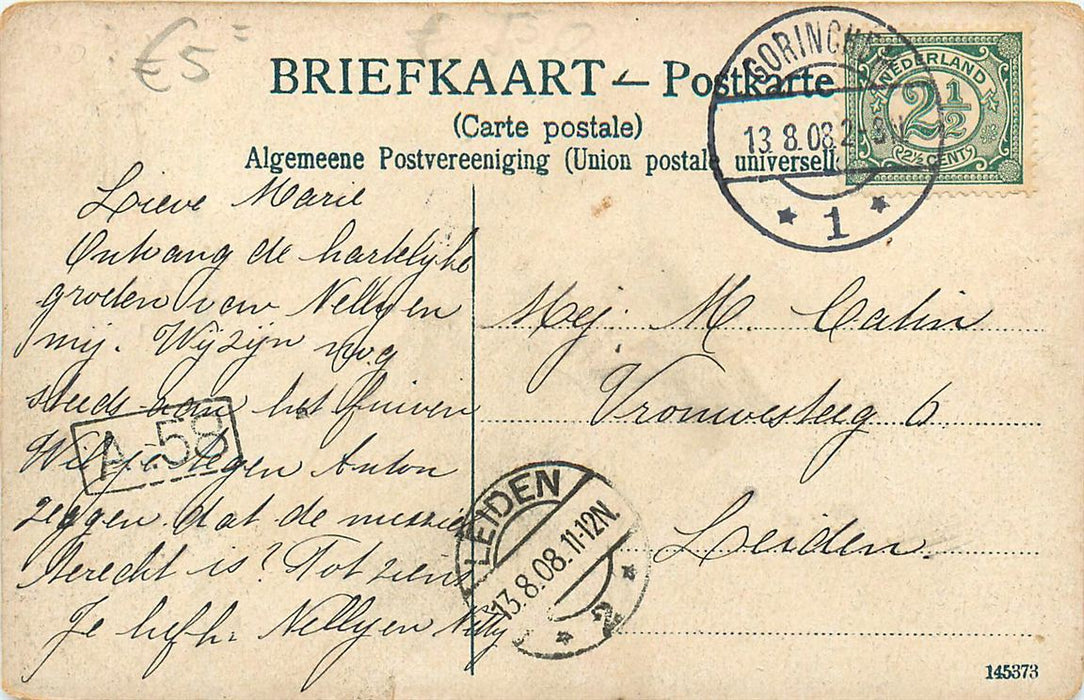 €5=
BRIEFKAART – Postkarte
(Carte postale)
Algemeene Postvereeniging (Union postale universelle
GORINCHEM
13.8.08.2-3N
1
NEDERLAND
2½
2½ CENT
Lieve Marie
Ontvang de hartelijke
groeten van Nelly en
mij. Wij zijn nog
steeds aan het fuiven
Wil je tegen Anton
zeggen dat de messie
terecht is? Tot ziens
Je liefh. Nelly en Nelly
A-58
Mej. M. Catin
Vrouwesteeg 6
Leiden.
LEIDEN
13.8.08.11-12N.
2
145373